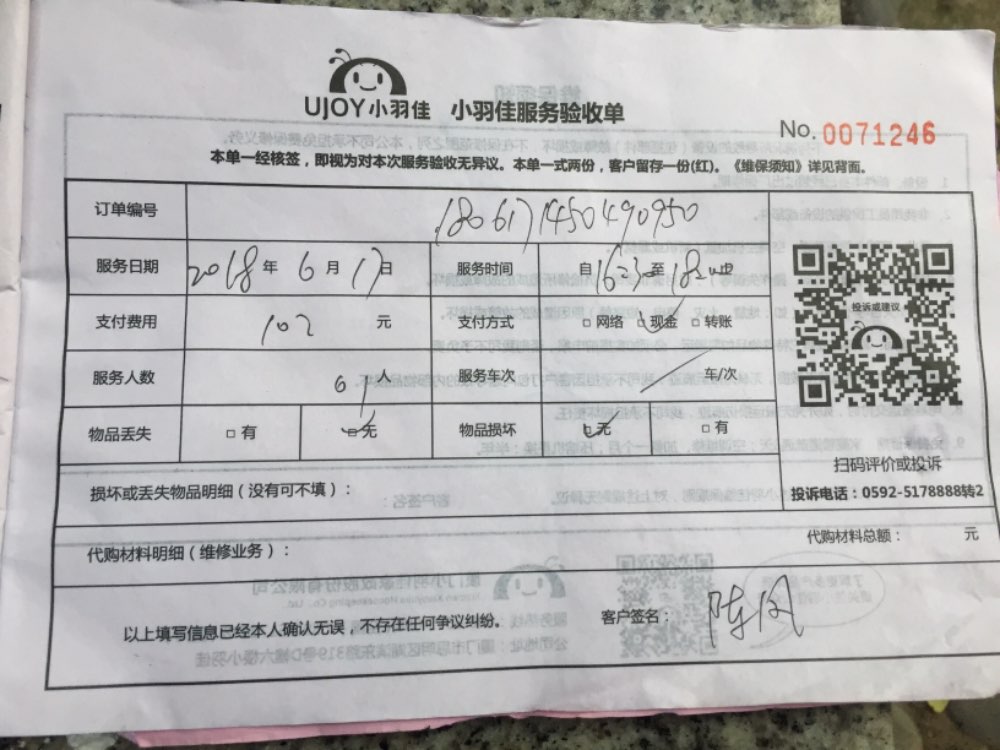 UJOY小羽佳 小羽佳服务验收单
No. 0071246
本单一经核签，即视为对本次服务验收无异议。本单一式两份，客户留存一份(红)。《维保须知》详见背面。
订单编号 1806171450490950
服务日期 2018年6月17日 服务时间 自 至
支付费用 102 元 支付方式 □网络 □现金 □转账
投诉或建议
服务人数 人 服务车次 车/次
物品丢失 □有 □无 物品损坏 □无 □有
扫码评价或投诉
损坏或丢失物品明细（没有可不填）：
投诉电话：0592-5178888转2
代购材料明细（维修业务）： 代购材料总额： 元
以上填写信息已经本人确认无误，不存在任何争议纠纷。 客户签名：